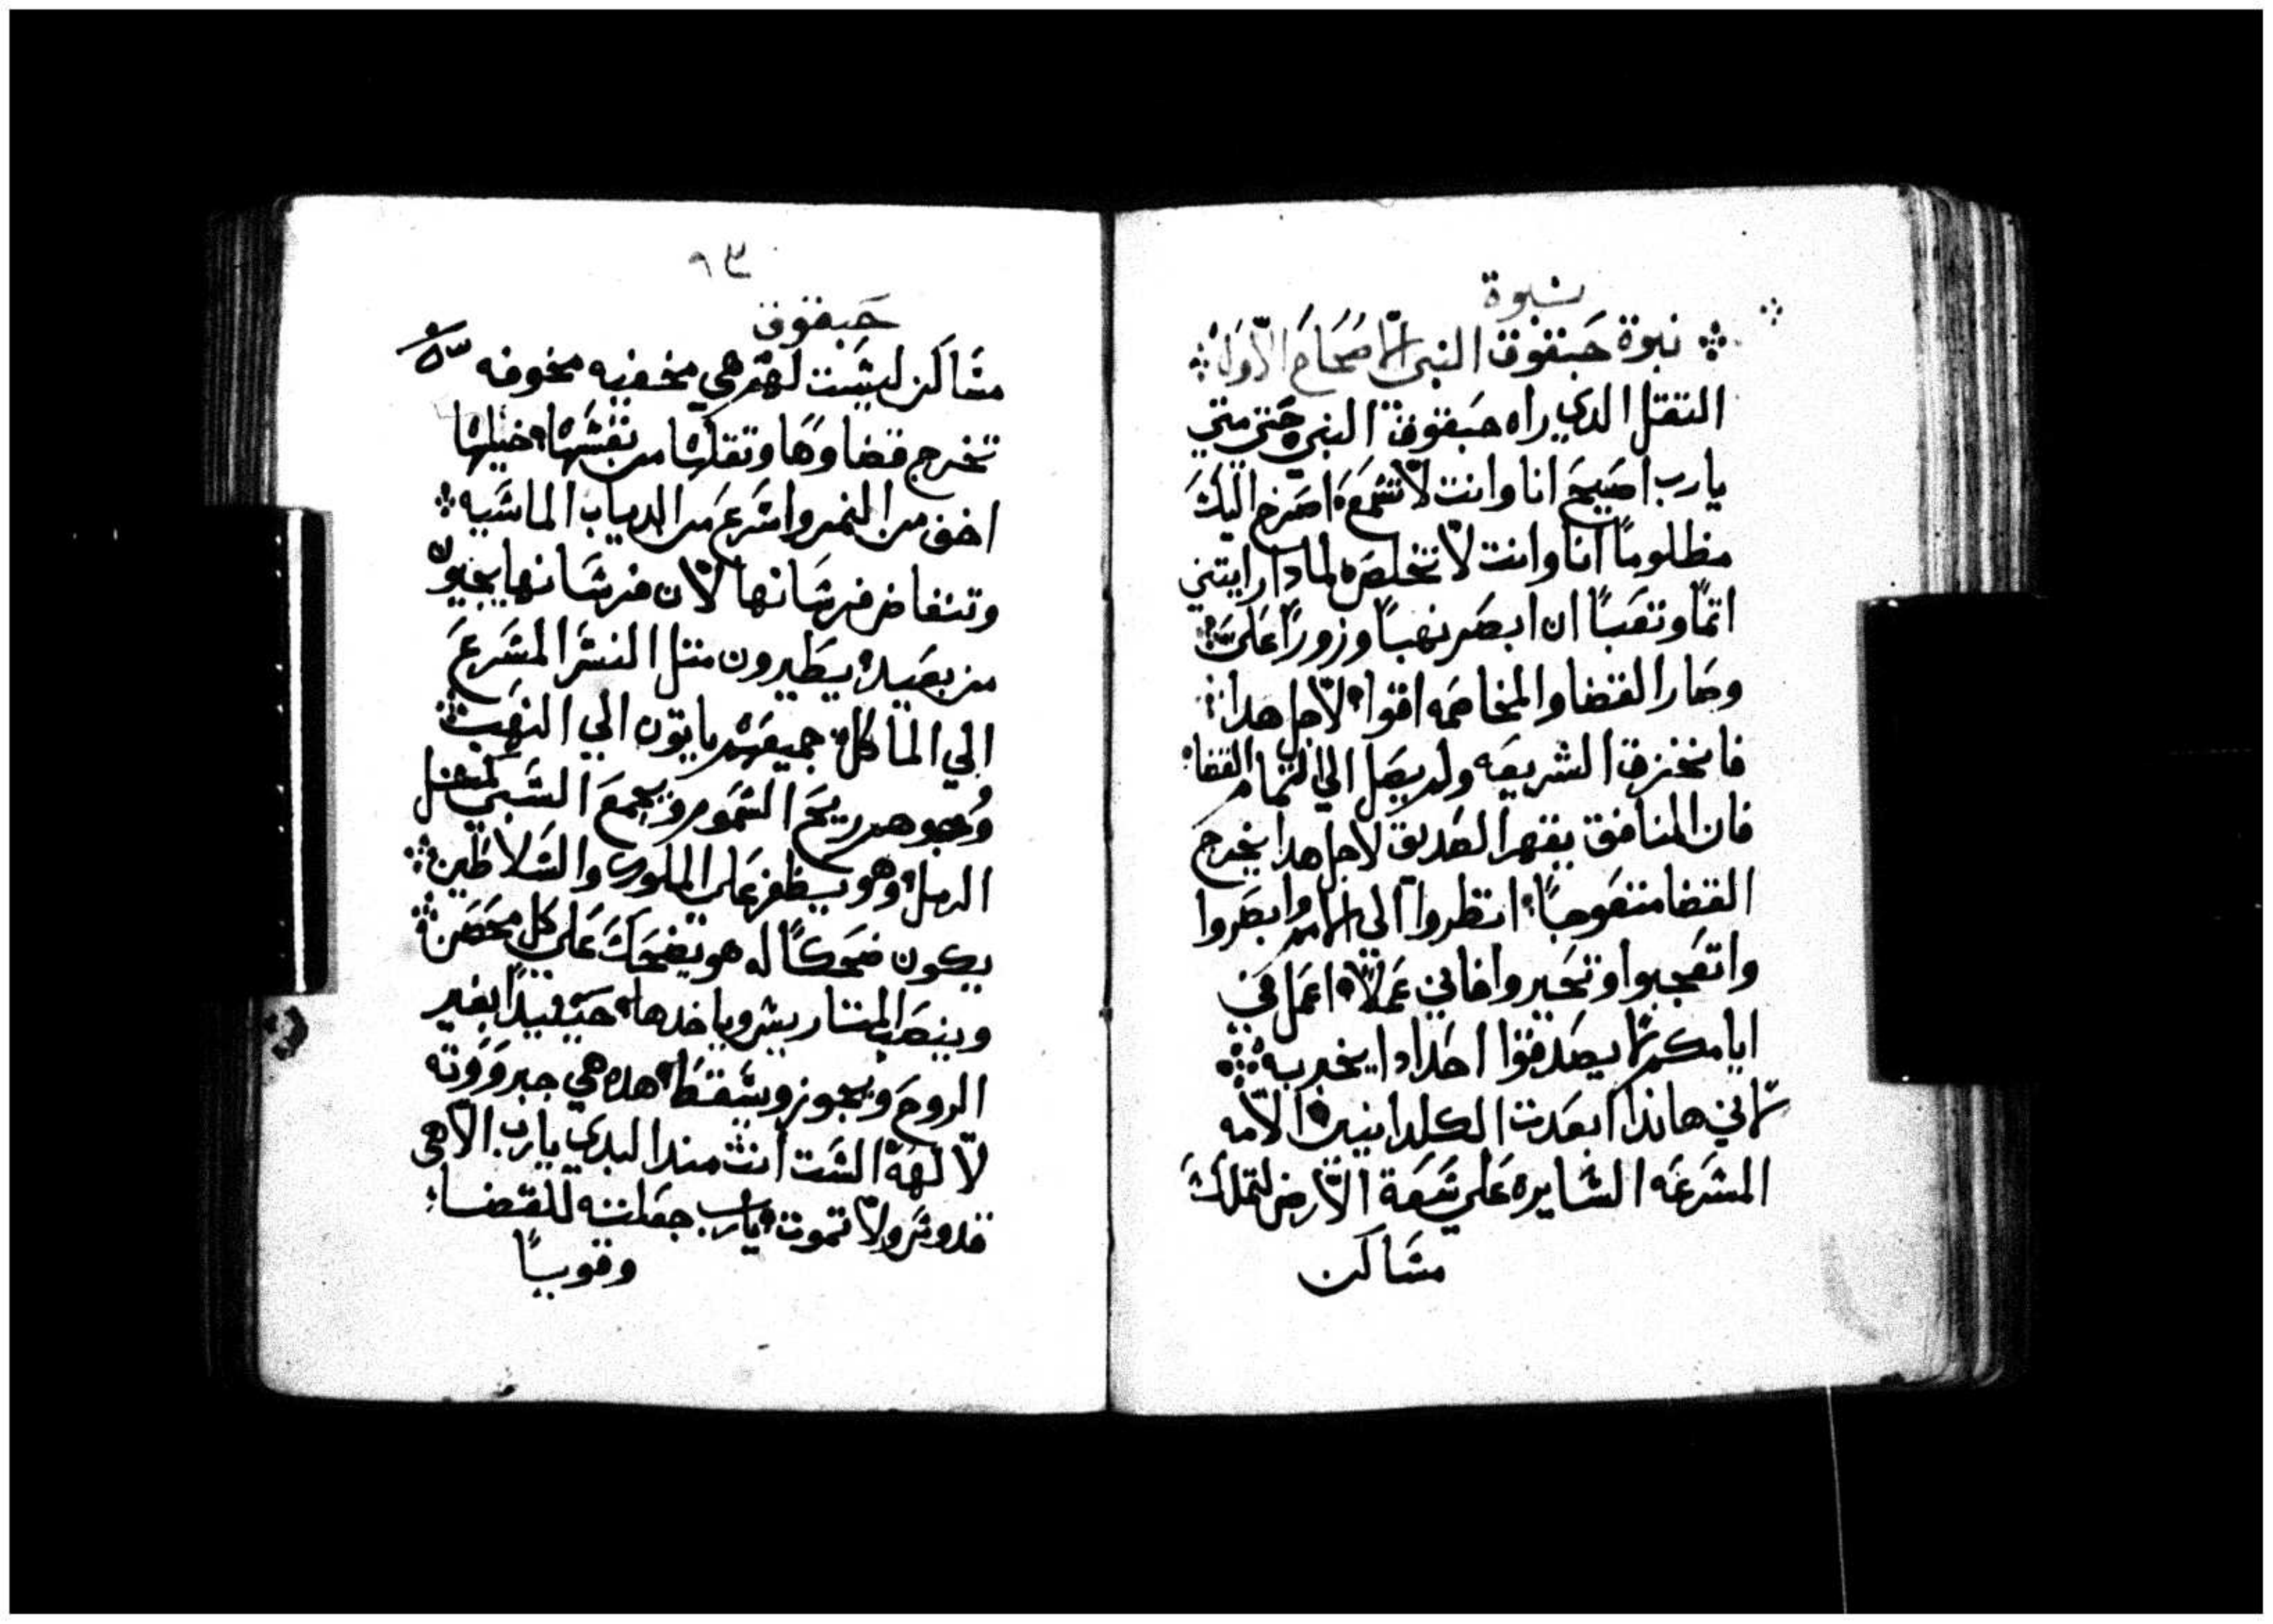 نبوة
نبوة حبقوق النبي الاصحاح الاول
التقل الدي راه حبقوق النبي حتي متي
يارب اصيح انا وانت لا تسمع اصرخ اليك
مظلوما انا وانت لا تخلص لمادا رايتني
اتما وتعبا ان ابصر نهبا وزورا علي
وصار القضا والمخاصمه اقوا لاجل هدا
فانخزق الشريعه ولم يصل الي التمام القضا
فان المنافق يقهر الصديق لاجل هدا يخرج
القضا متعوجا انظروا الي الامم وابصروا
واتعجبوا وتحيروا فاني عملا اعمل في
ايامكم لا يصدقوا احد ادا يخبر به
لاني هاندا ابعدت الكلدانيين الامه
المسرعه السايره علي سعة الارض لتملك
مساكن
٩٣
حبقوق
مساكن ليست لهم هي مخفيه مخوفه
تخرج قضاوها وتقلها من نفسها خيلها
اخف من النمر واسرع من الدياب الماسيه
وتنفاض فرسانها لان فرسانها يجيون
من بعيد يطيرون متل النسر المسرع
الي الماكل جميعهم ياتون الي النهب
وجوههم ريح السموم ويجمع السبي كمتل
الرمل وهو يظفر علي الملوك والسلاطين
يكون ضحكا له هو يضحك علي كل محصن
وينصب المتاريس وياخدها حينيدا بغير
الروح ويجوز ويسقط هده هي جبروته
لالهه الست انت مند البدي يارب الاهي
قدوس ولا تموت يارب جعلته للقضا
وقويا